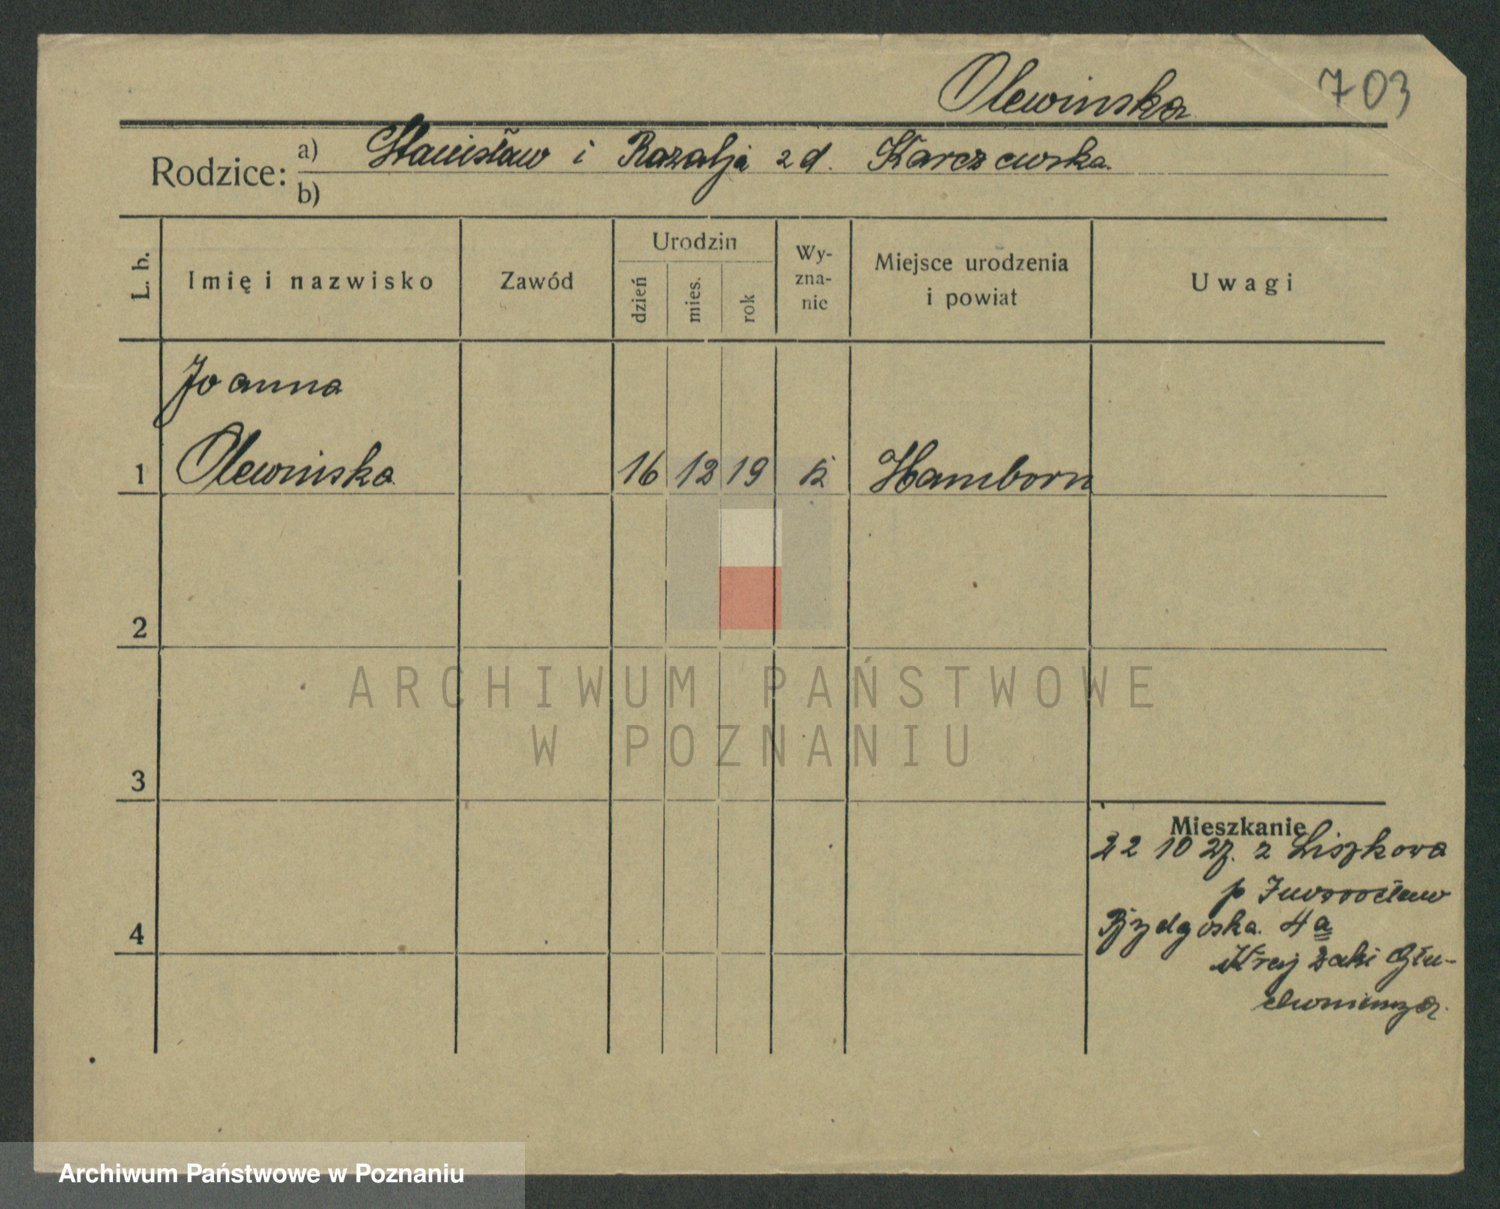 Olewinska 703
Rodzice: a) Stanisław i Rozalja z d. Karczewska
b)
L. b. Imię i nazwisko Zawód Urodzin dzień mies. rok Wy-zna-nie Miejsce urodzenia i powiat Uwagi
Joanna
1 Olewinska 16 12 19 k Hamborn
2
3
Mieszkanie
22 10 27. z Liszkowa
p Inwrocław
4 Bydgoska 4a
ARCHIWUM PAŃSTWOWE
W POZNANIU
Archiwum Państwowe w Poznaniu